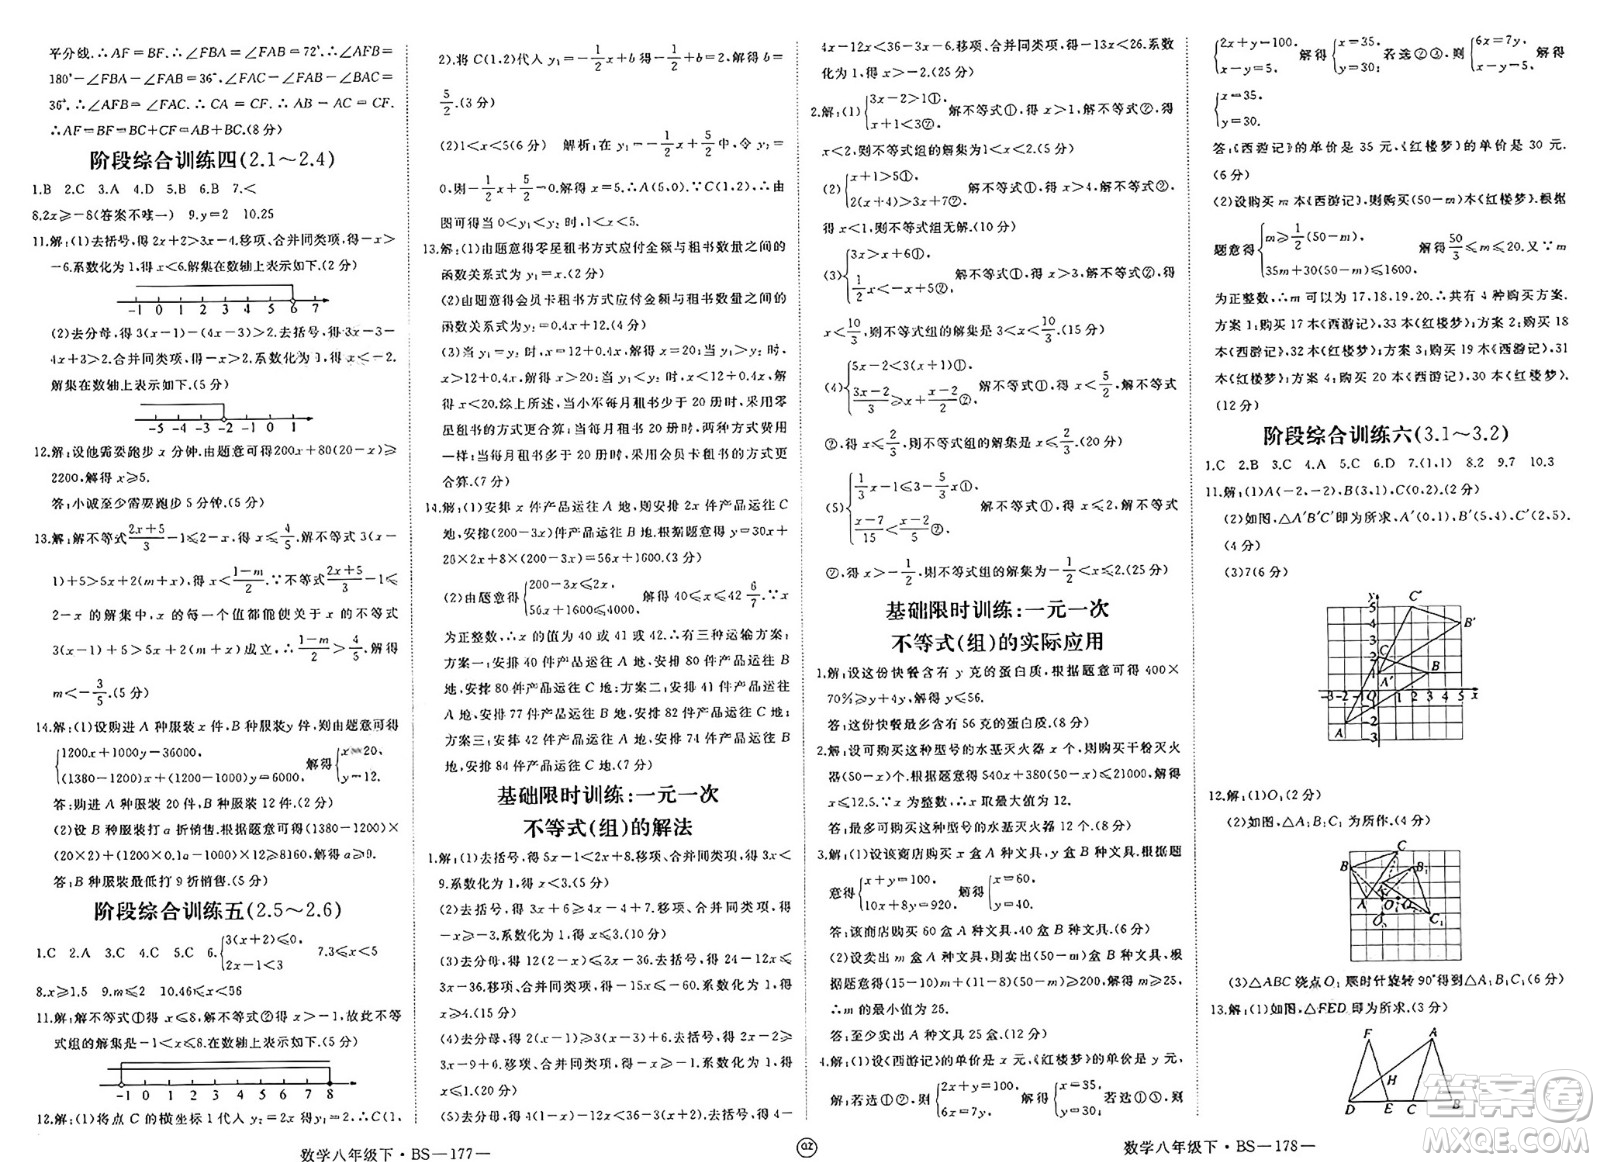 平分线.∴AF=BF.∵∠FBA=∠FAB=72°,∴∠AFB=
180°-∠FBA-∠FAB=36°,∴∠AFB=∠FAC=
36°,∴∠AFB=∠FAC.∴CA=CF.∴AB=AC=CF.
∴AF=BF=BC+CF=AB+BC.(8分)
阶段综合训练四(2.1～2.4)
1.B 2.C 3.A 4.D 5.B 6.B 7.<
8.2x≥-8(答案不唯一) 9.y=2 10.25
11.解:(1)去括号,得2x+2>3x-4.移项、合并同类项,得-x>
-6.系数化为1,得x<6.解集在数轴上表示如下.(2分)
-1 0 1 2 3 4 5 6 7
(2)去分母,得3(x-1)-(4x-3)>2.去括号,得3x-3-
4x+3>2.合并同类项,得-x>2.系数化为1,得x<-2.
解集在数轴上表示如下.(5分)
-5 -4 -3 -2 -1 0 1
12.解:设他需要跑步x分钟.由题意可得200x+80(19-x)≥
2200.解得x≥
答:小诚至少需要跑步5分钟.(5分)
13.解:解不等式(2x+5)/3-1≤2-x,得x≤4/5.解不等式3(x-
1)+5>5x+2(m+x),得x<(1-m)/2.∵不等式(2x+5)/3-1≤
2-x的解集中x的每一个值都能使关于x的不等式
3(x-1)+5>5x+2(m+x)成立,∴(1-m)/2>4/5.解得
m<-3/5.(5分)
14.解:(1)设购进A种服装x件,B种服装y件,由题意可得
{1200x+1000y=36000, 解得{x=20,
(1380-1200)x+(1200-1000)y=6000. y=12.
答:购进A种服装20件,B种服装12件.(2分)
(2)设B种服装打a折销售.根据题意可得(1380-1200)×
(20×2)+(1200×0.1a-1000)×12≥8160,解得a≥9.
答:B种服装最低打9折销售.(6分)
阶段综合训练五(2.5～2.6)
1.C 2.A 3.C 4.C 5.C 6.{3(x+2)≤0, 2x-1<3 7.3≤x<5
8.x≥1.5 9.m≤2 10.46≤x<56
11.解:解不等式①得x≤8,解不等式②得x>-1,故此不等
式组的解集是-1<x≤8.在数轴上表示如下.(5分)
-1 0 1 2 3 4 5 6 7 8
12.解:(1)将点C的横坐标1代入y₂=2x得y₂=2,∴C(1,
2).将C(1,2)代入y₁=-1/2x+b,得-1/2+b=2,∴b=
5/2.(3分)
(2)1<x<5(6分) 解析:在y₁=-1/2x+5/2中,令y₁=
0,则-1/2x+5/2=0,解得x=5,∴A(5,0).∵C(1,2),∴由
图可得当0<y₁<y₂时,x的取值范围为1<x<5.
13.解:(1)由题意得零星租书方式应付金额与租书数量之间的
函数关系式为y₁=x.(2分)
(2)由题意得会员卡租书方式应付金额与租书数量之间的
函数关系式为y₂=0.4x+12.(4分)
(3)当y₁=y₂时,x=12+0.4x,解得x=20;当y₁>y₂时,
x>12+0.4x,解得x>20;当y₁<y₂时,x<12+0.4x,解
得x<20.综上所述,当小军每月租书少于20册时,采用零
星租书的方式更合算;当小军每月租书20册时,两种方式
一样;当每月租书多于20册时,采用会员卡租书的方式更
合算.(7分)
14.解:(1)安排x件产品运往A地,则安排2x件产品运往C
地,安排(200-3x)件产品运往B地.根据题意,得y=30x+
2x+8×(200-3x)=56x+1600.(3分)
(2)由题意得{200-3x≤2x, 56x+1600≤4000. 解得40≤x≤42 6/7.∵x
为正整数,∴x的值为40或41或42,∴有三种运输方案:
方案一:安排40件产品运往A地,安排80件产品运往B
地,安排80件产品运往C地;方案二:安排41件产品运往
A地,安排77件产品运往B地,安排82件产品运往C地;
方案三:安排42件产品运往A地,安排74件产品运往B
地,安排84件产品运往C地.(7分)
基础限时训练:一元一次
不等式(组)的解法
1.解:(1)去括号,得5x-1<2x+8.移项、合并同类项,得3x<
9.系数化为1,得x<3.(5分)
(2)去括号,得3x+6≥4x-4+7.移项、合并同类项,得
-x≥-3.系数化为1,得x≤3.(10分)
(3)去分母,得
x≥4.(15分)
x≤1.(20分)
(5)去分母,得
4x-12x<36-3x-6.移项、合并同类项,得-13x<26.系数
化为1,得x>-2.(25分)
2.解:(1){3x-2>1①, x+1<3②. 解不等式①,得x>1,解不等式②,得
x<2,则不等式组的解集为1<x<2.(5分)
(2){x+1>5①, 2(x+4)>3x+7②. 解不等式①,得x>4,解不等式②,得
x<1,则不等式组无解.(10分)
x<10/3,则不等式组的解集3<x<10/3.(15分)
②,得x≤2/5,则不等式组的解集是x≤2/5.(20分)
②,得x>-1/2,则不等式组的解集为(25分)
基础限时训练:一元一次
不等式(组)的实际应用
1.解:设这份快餐含有y克的蛋白质,根据题意可得400×
70%≥y+4y,解得y≤56.
答:这份快餐最多含有56克的蛋白质.(8分)
2.解:设可购买这种型号的水基灭火器x个,则购买干粉灭火
器(50-x)个,根据题意得540x+380(50-x)≤21000,解得
x≤12.5.∵x为整数,∴x取最大值为12.
答:最多可购买这种型号的水基灭火器12个.(8分)
3.解:(1)设该商店购买x盒A种文具,y盒B种文具.根据题
意得{x+y=100, 10x+8y=920. 解得{x=60, y=40.
答:该商店购买60盒A种文具,40盒B种文具.(6分)
(2)设卖出m盒A种文具,则卖出(50-m)盒B种文具,根据
题意得(15-10)m+(11-8)(50-m)≥200.解得m≥25,
∴m的最小值为25.
答:至少卖出A种文具25盒.(12分)
4.解:(1)设《西游记》的单价是x元,《红楼梦》的单价是y元.
解:若选①②,则{2x+y=100, 6x=7y. 解得{x=35, y=30. 若选①③,则
{2x+y=100, x-y=5. 解得{x=35, y=30. 若选②③,则{6x=7y, x-y=5. 解得
{x=35, y=30.
答:《西游记》的单价是35元,《红楼梦》的单价是30元.
(6分)
(2)设购买m本《西游记》,则购买(50-m)本《红楼梦》.根据
题意得{m≥1/2(50-m), 35m+30(50-m)≤1600. 解得50/3≤m≤20.又∵m
为正整数,∴m可以为17,18,19,20.∴共有4种购买方案.
方案1:购买17本《西游记》,33本《红楼梦》;方案2:购买18
本《西游记》,32本《红楼梦》;方案3:购买19本《西游记》,31本
《红楼梦》;方案4:购买20本《西游记》,30本《红楼梦》.
(12分)
阶段综合训练六(3.1～3.2)
1.C 2.B 3.C 4.A 5.C 6.D 7.(1,1) 8.2 9.7 10.3
11.解:(1)A(-2,-2),B(3,1),C(0,2).(2分)
(2)如图,△A'B'C'即为所求,A'(0,1),B'(5,4),C'(2,5).
(4分)
(3)7(6分)
12.解:(1)O₁(2分)
(2)如图,△A₁B₁C₁为所作.(4分)
(3)△ABC绕点O₁顺时针旋转90°得到△A₁B₁C₁(6分)
13.解:(1)如图,△FED即为所求.(3分)
F A H D E C B
数学八年级下·BS—177—
QZ
数学八年级下·BS—178—
答案圈
MXQE.COM